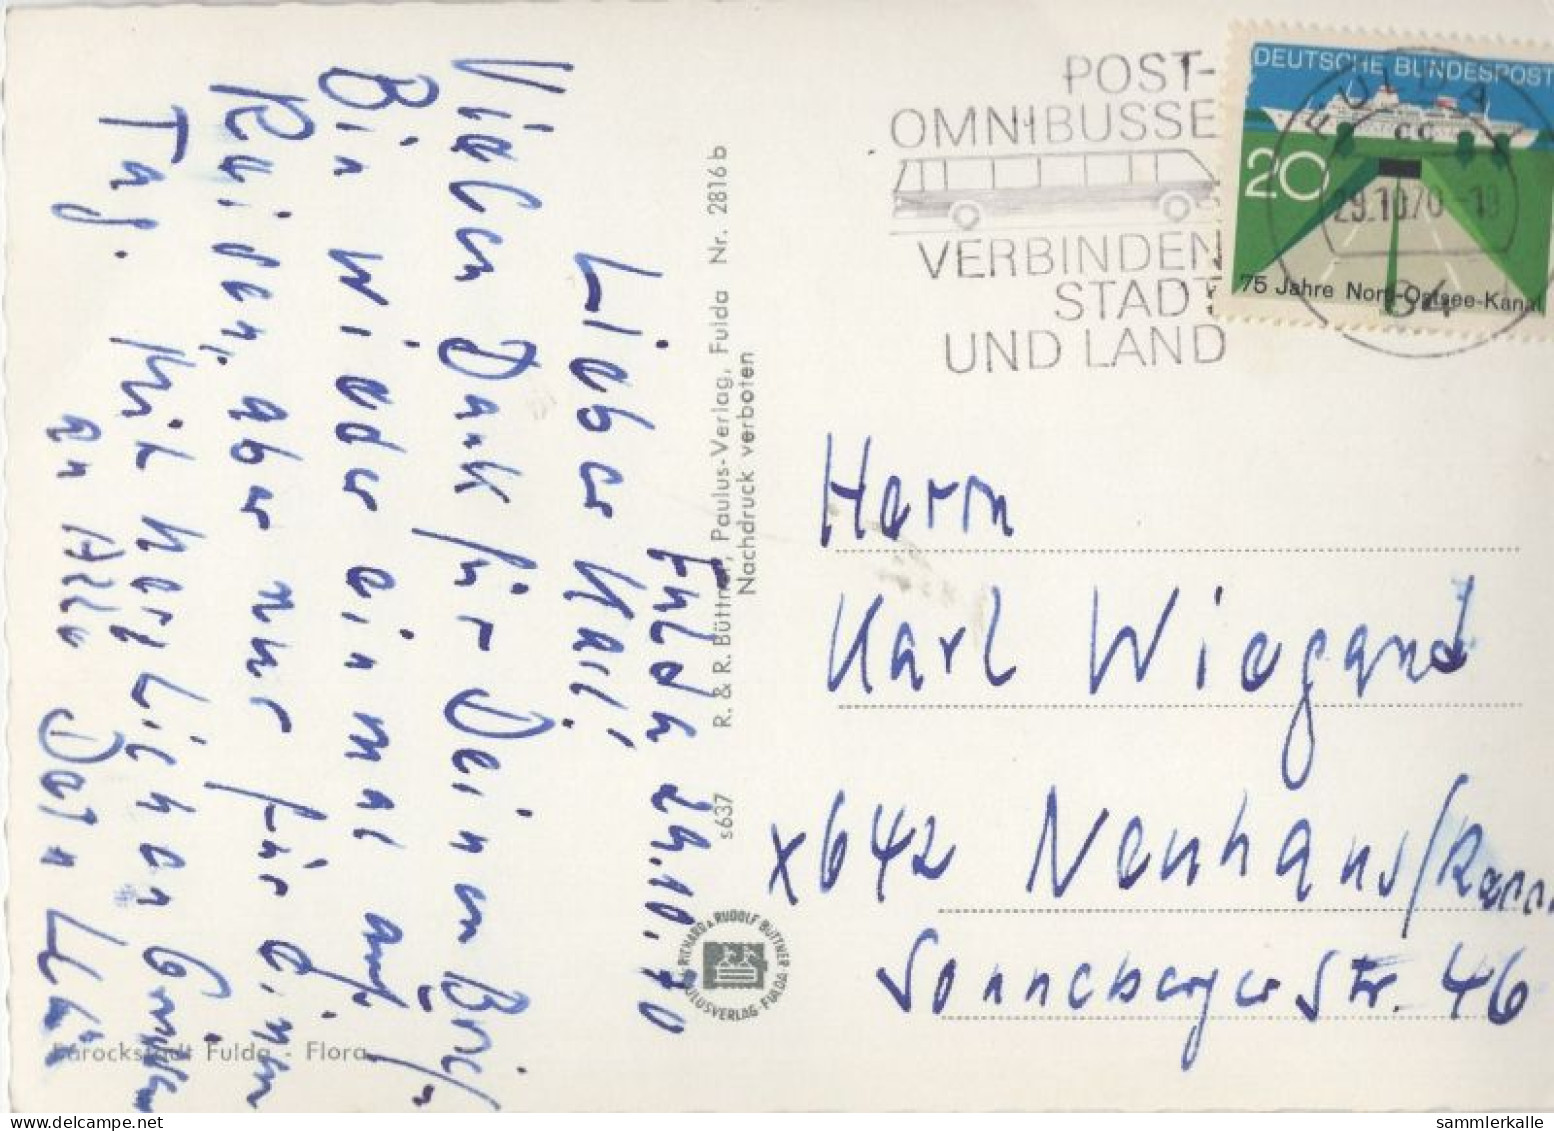 Fulda 29.10.70
Lieber Karl!
Vielen Dank für Deinen Brief.
Bin wieder einmal auf
Reisen, aber nur für einen
Tag. Mit herzlichen Grüßen
an Alle Dein
Barockstadt Fulda - Flora
s637 R. & R. Büttner, Paulus-Verlag, Fulda Nr. 2816 b
Nachdruck verboten
RICHARD & RUDOLF BÜTTNER
PAULUSVERLAG · FULDA
POST-
OMNIBUSSE
VERBINDEN
STADT
UND LAND
DEUTSCHE BUNDESPOST
20
75 Jahre Nord-Ostsee-Kanal
FULDA 1
cc
29.10.70-18
64
Herrn
Karl Wiegand
x642 Neuhaus/Renn.
Sonneberger Str. 46
sammlerkalle